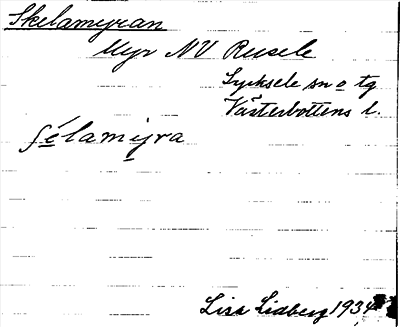 Skelamyran
Myr NV Rusele
Lycksele sn o tg
Västerbottens l.
sélamyra
Lisa Lidberg 1934